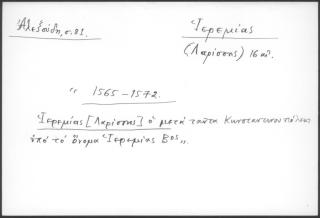 Ἀλεξούδη, σ. 81.
Ἱερεμίας
(Λαρίσσης) 16 αἰ.
" 1565-1572.
Ἱερεμίας [Λαρίσσης] ὁ μετὰ ταῦτα Κωνσταντινουπόλεως
ὑπὸ τὸ ὄνομα Ἱερεμίας Βος „.